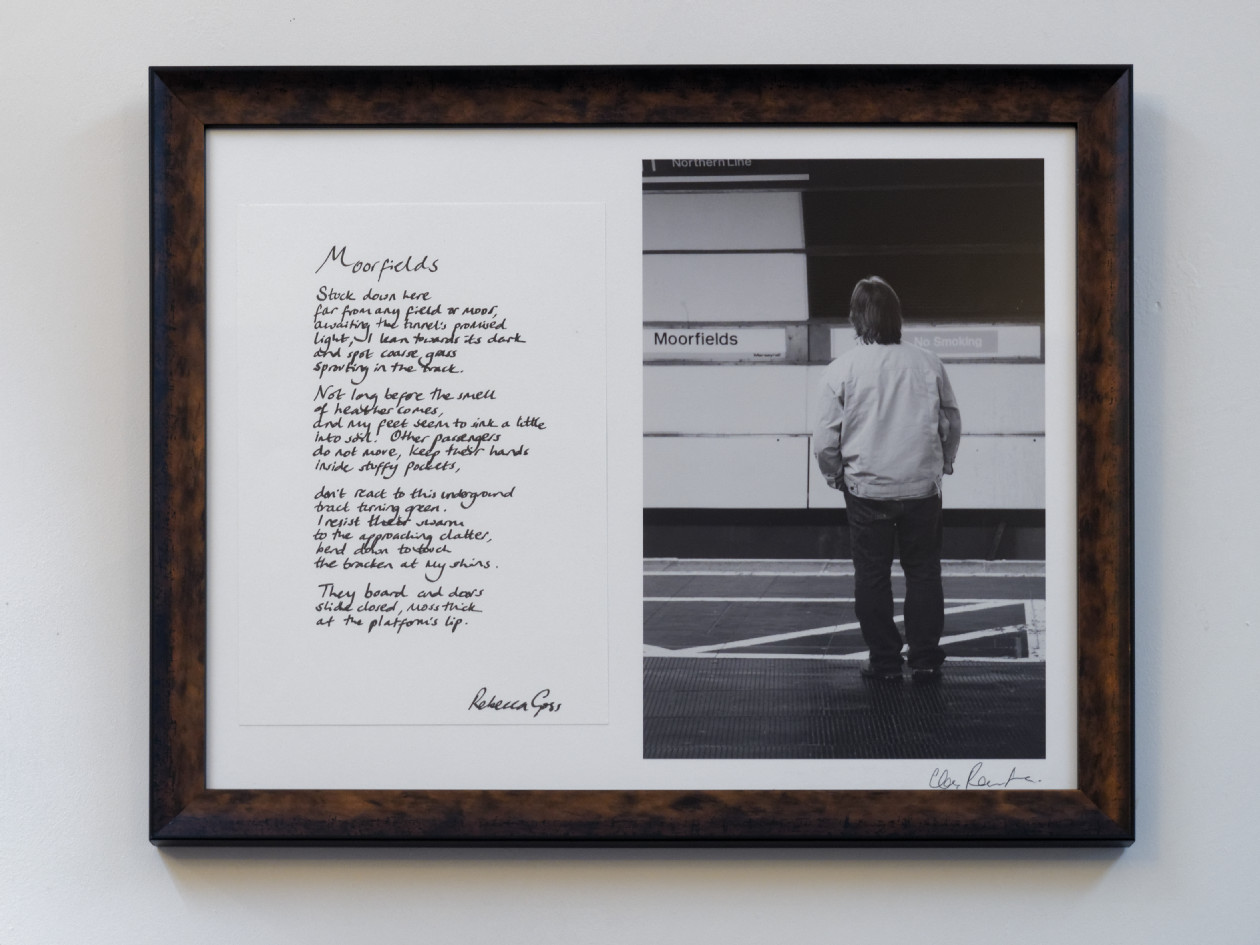 Moorfields
Stuck down here
far from any field or moor,
awaiting the tunnel's promised
light, I lean towards its dark
and spot coarse grass
sprouting in the track.
Not long before the smell
of heather comes,
and my feet seem to sink a little
into soil. Other passengers
do not move, keep their hands
inside stuffy pockets,
don't react to this underground
tract turning green.
I resist their swarm
to the approaching clatter,
bend down to touch
the bracken at my shins.
They board and doors
slide closed, moss thick
at the platform's lip.
Rebecca Goss
Northern Line
Moorfields
No Smoking